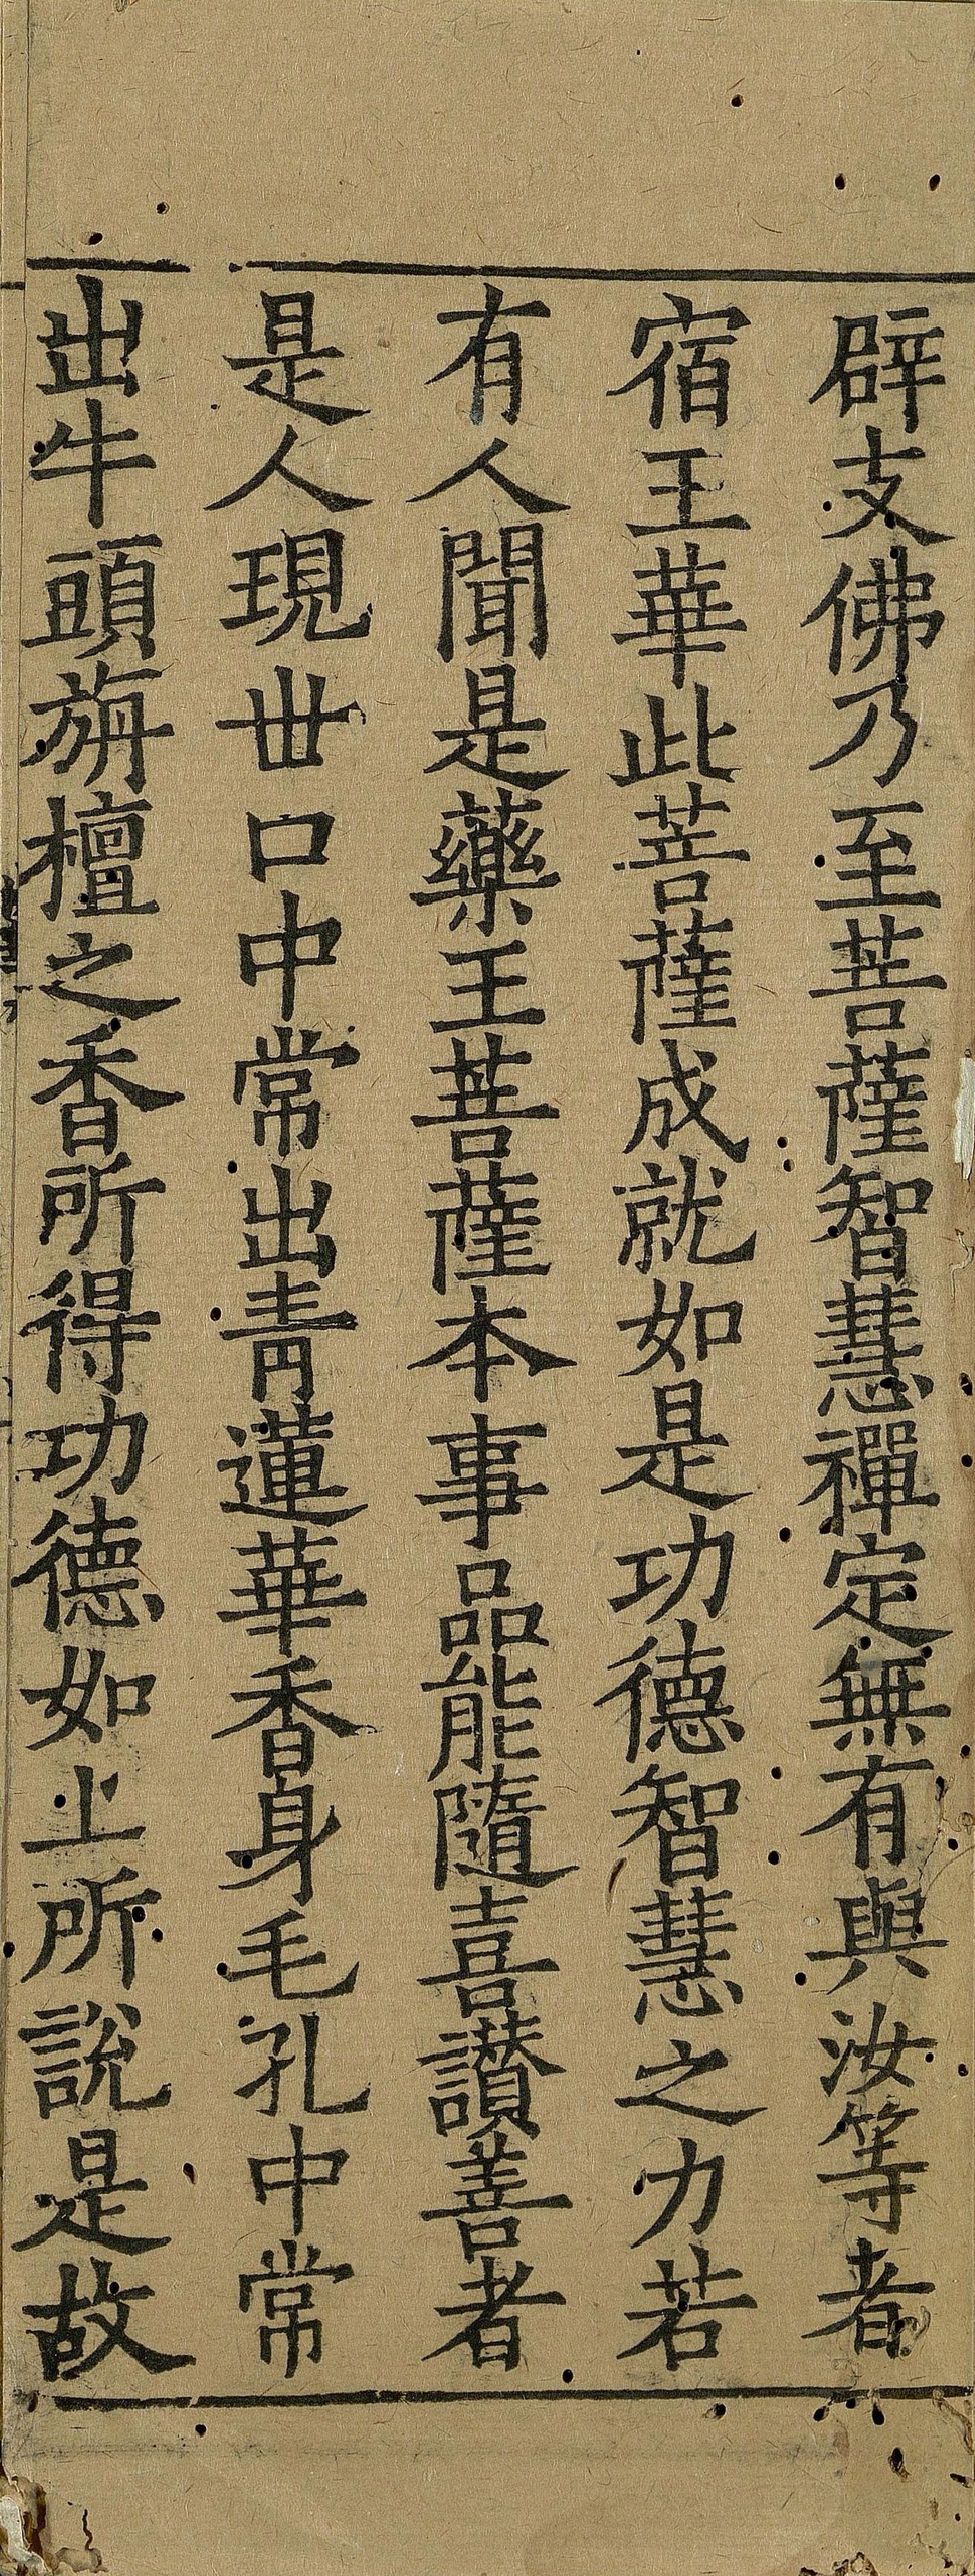 辟支佛乃至菩薩智慧禪定無有與汝等者
宿王華此菩薩成就如是功德智慧之力若
有人聞是藥王菩薩本事品能隨喜讃善者
是人現世口中常出青蓮華香身毛孔中常
出牛頭旃檀之香所得功德如上所說是故